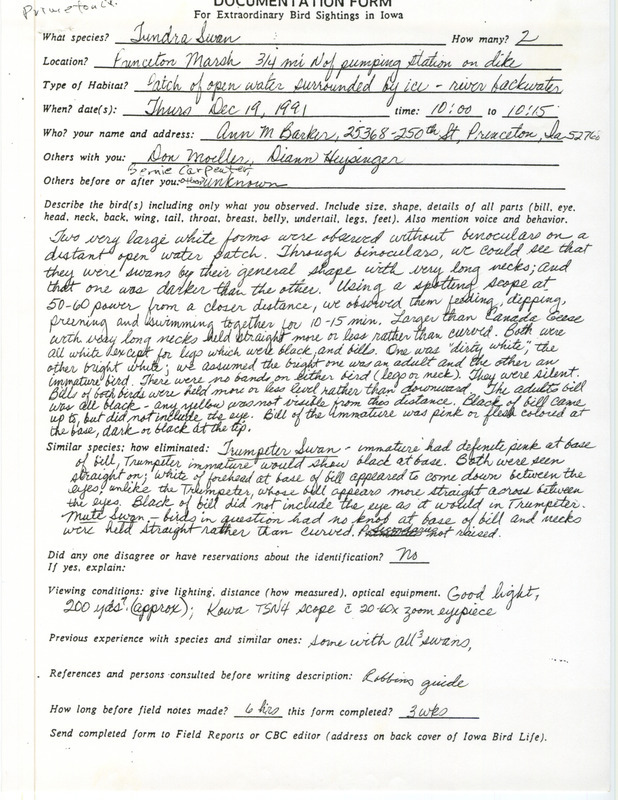 Princeton
DOCUMENTATION FORM
For Extraordinary Bird Sightings in Iowa
What species? Tundra Swan How many? 2
Location? Princeton Marsh 3/4 mi N of pumping station on dike
Type of Habitat? Patch of open water surrounded by ice - river backwater
When? date(s): Thurs Dec 19, 1991 time: 10:00 to 10:15
Who? your name and address: Ann M Barker, 25368-250th St, Princeton, Ia 52768
Others with you: Don Moeller, Diann Heysinger
Bernie Carpenter,
Others before or after you: others unknown
Describe the bird(s) including only what you observed. Include size, shape, details of all parts (bill, eye,
head, neck, back, wing, tail, throat, breast, belly, undertail, legs, feet). Also mention voice and behavior.
Two very large white forms were observed without binoculars on a
distant open water patch. Through binoculars, we could see that
they were swans by their general shape with very long necks; and
that one was darker than the other. Using a spotting scope at
50-60 power from a closer distance, we observed them feeding, dipping,
preening and swimming together for 10-15 min. Larger than Canada Geese
with very long necks held straight more or less rather than curved. Both were
all white except for legs which were black, and bills. One was "dirty white", the
other bright white; we assumed the bright one was an adult and the other an
immature bird. There were no bands on either bird (legs or neck). They were silent.
Bills of both birds were held more or less level rather than downward. The adult's bill
was all black - any yellow was not visible from this distance. Black of bill came
up to, but did not include the eye. Bill of the immature was pink or flesh colored at
the base, dark or black at the tip.
Similar species; how eliminated: Trumpeter Swan - immature had definite pink at base
of bill, Trumpeter immature would show black at base. Both were seen
straight on; white of forehead at base of bill appeared to come down between the
eyes, unlike the Trumpeter, whose bill appears more straight across between
the eyes. Black of bill did not include the eye as it would in Trumpeter.
Mute Swan - birds in question had no knob at base of bill and necks
were held straight rather than curved. not raised.
Did any one disagree or have reservations about the identification? No
If yes, explain:
Viewing conditions: give lighting, distance (how measured), optical equipment. Good light,
200 yds? (approx); Kowa TSN4 scope c̄ 20-60x zoom eyepiece
Previous experience with species and similar ones: some with all 3 swans,
References and persons consulted before writing description: Robbins guide
How long before field notes made? 6 hrs this form completed? 3 wks
Send completed form to Field Reports or CBC editor (address on back cover of Iowa Bird Life).